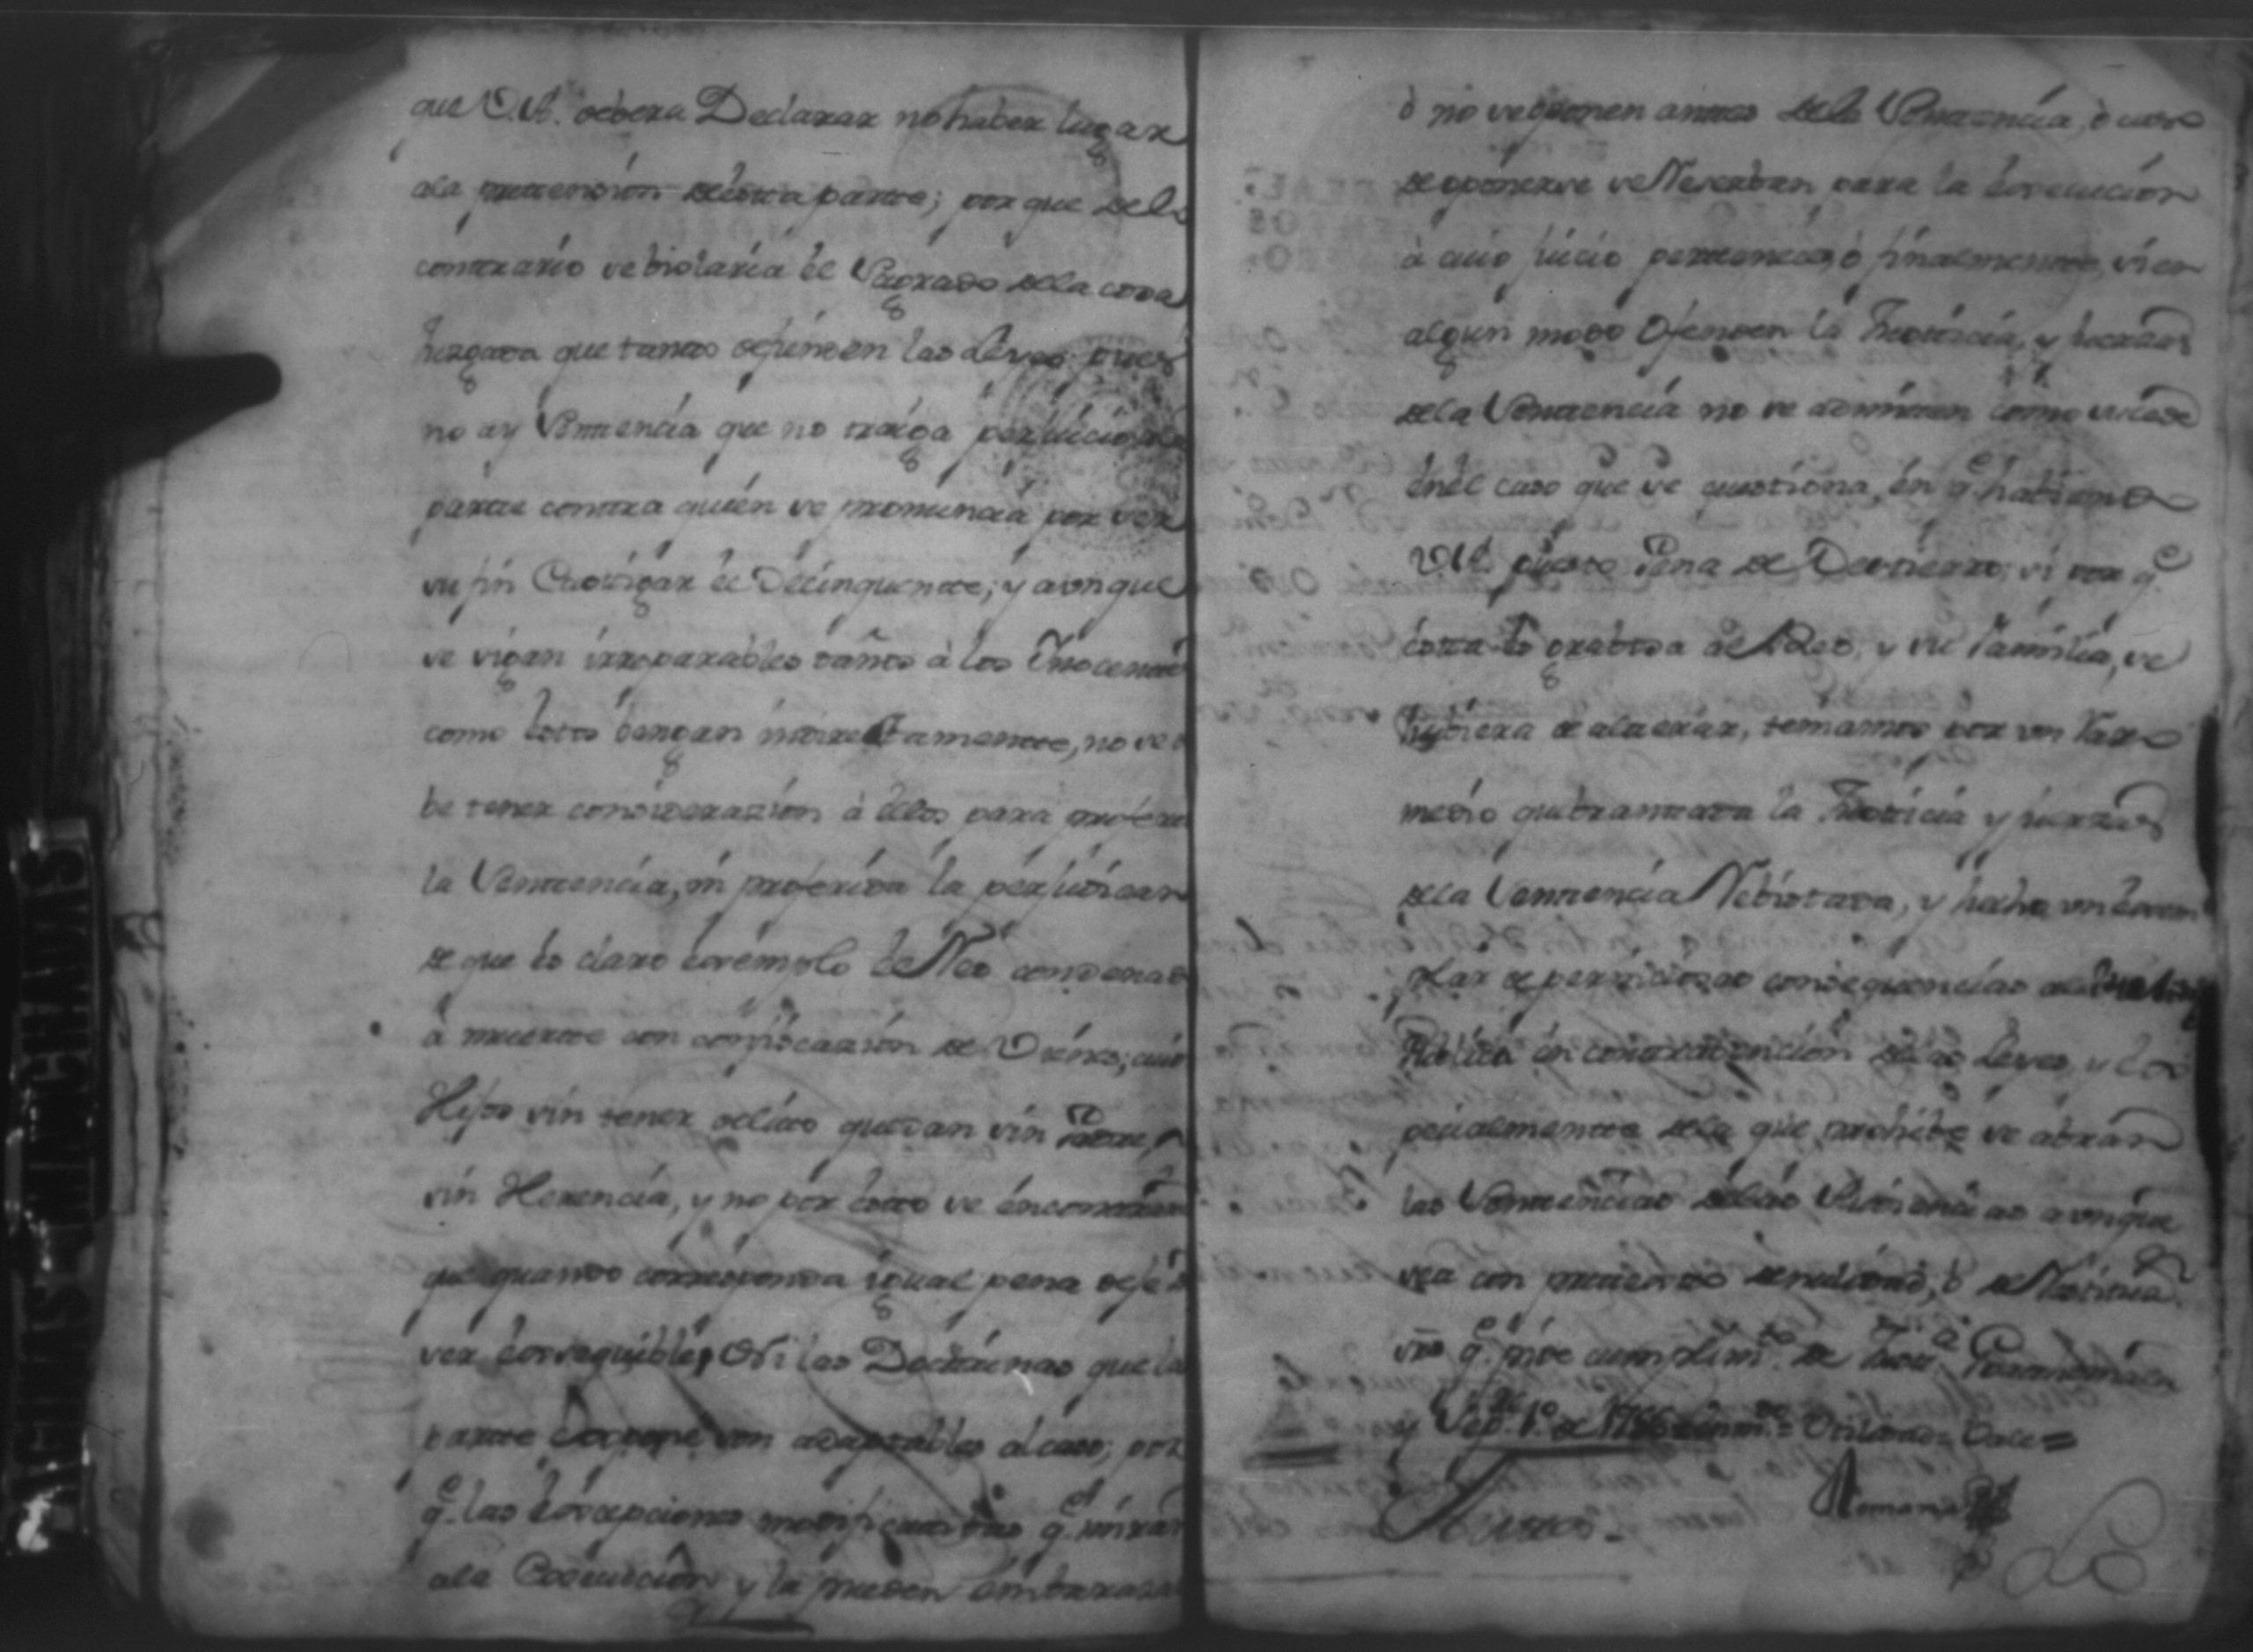 que V.A. debera Declarar no haber lugar
ala pretension de esta parte; por que delo
contrario se biolaria el Sagrado dela cosa
Juzgada que tanto defienden las Leyes pues
no ay Sentencia que no traiga perjuicio ala
parte contra quien se pronuncia por ser
su fin Castigar el Delinquente; y aunque
se sigan irreparables daños à los Inocentes
como estos bengan indirectamente, no se de
be tener consideracion à ellos para proferir
la Sentencia, ni proferida la perjudican
de que es claro exemplo el Reo condenado
à muerte con confiscacion de Vienes; cuios
Hijos sin tener delito quedan sin Padre, y
sin Herencia, y no por esto se encontrara
que quando corresponda igual pena deje de
ser exsequible, Ni las Doctrinas que la
parte Expone son adaptables al caso; por
q.e las excepciones modificativas q.e miran
ala Execucion y la pueden embarazar
ò no se oponen antes dela Sentencia, ò
de oponerse se Reserban para la Execucion
à cuio juicio pertenecen, ò finalmente, si en
algun modo Ofenden la Justicia, y fuerzas
dela Sentencia no se admiten como sucede
en el caso que se questiona, en q.e habiendo
V.A. puesto Pena de Destierro, si por q.e
esta es grabosa al Reo, y su familia, se
hubiera de alterar, teniamos por un
medio quebrantada la Justicia y fuerzas
dela Sentencia Rebistada, y hecho un exem
plar de perniciosas consequencias ala
Publica en contravencion delas Leyes, y Es
pecialmente dela que prohibe se abran
las Sentencias delas aunque
sea con pretexto de nulidad, ò de Notoria
q.e pide cumplim.to de Just.a Guathemala
y Sep.re 1.o de 1766 = Vale =
Romana